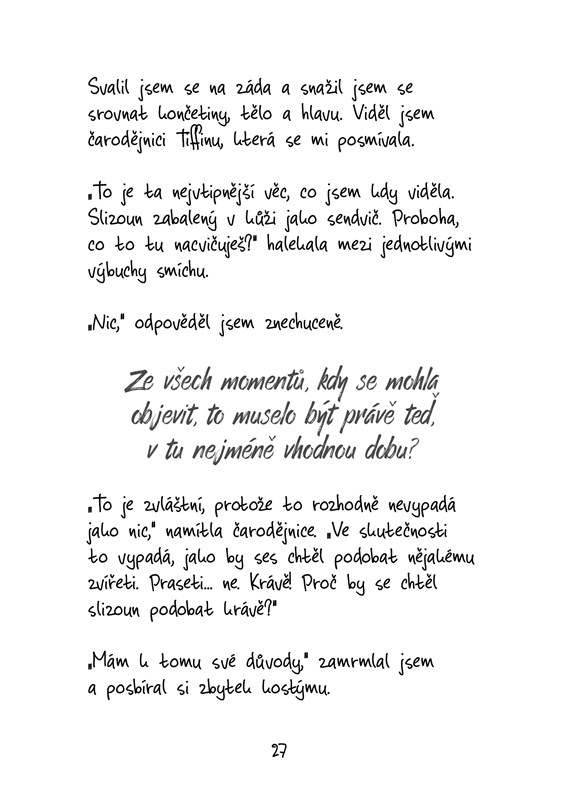 Svalil jsem se na záda a snažil jsem se
srovnat končetiny, tělo a hlavu. Viděl jsem
čarodějnici Tiffinu, která se mi posmívala.
„To je ta nejvtipnější věc, co jsem kdy viděla.
Slizoun zabalený v kůži jako sendvič. Proboha,
co to tu nacvičuješ?" halekala mezi jednotlivými
výbuchy smíchu.
„Nic," odpověděl jsem znechuceně.
Ze všech momentů, kdy se mohla
objevit, to muselo být právě teď,
v tu nejméně vhodnou dobu?
„To je zvláštní, protože to rozhodně nevypadá
jako nic," namítla čarodějnice. „Ve skutečnosti
to vypadá, jako by ses chtěl podobat nějakému
zvířeti. Praseti... ne. Krávě! Proč by se chtěl
slizoun podobat krávě?"
„Mám k tomu své důvody," zamrmlal jsem
a posbíral si zbytek kostýmu.
27